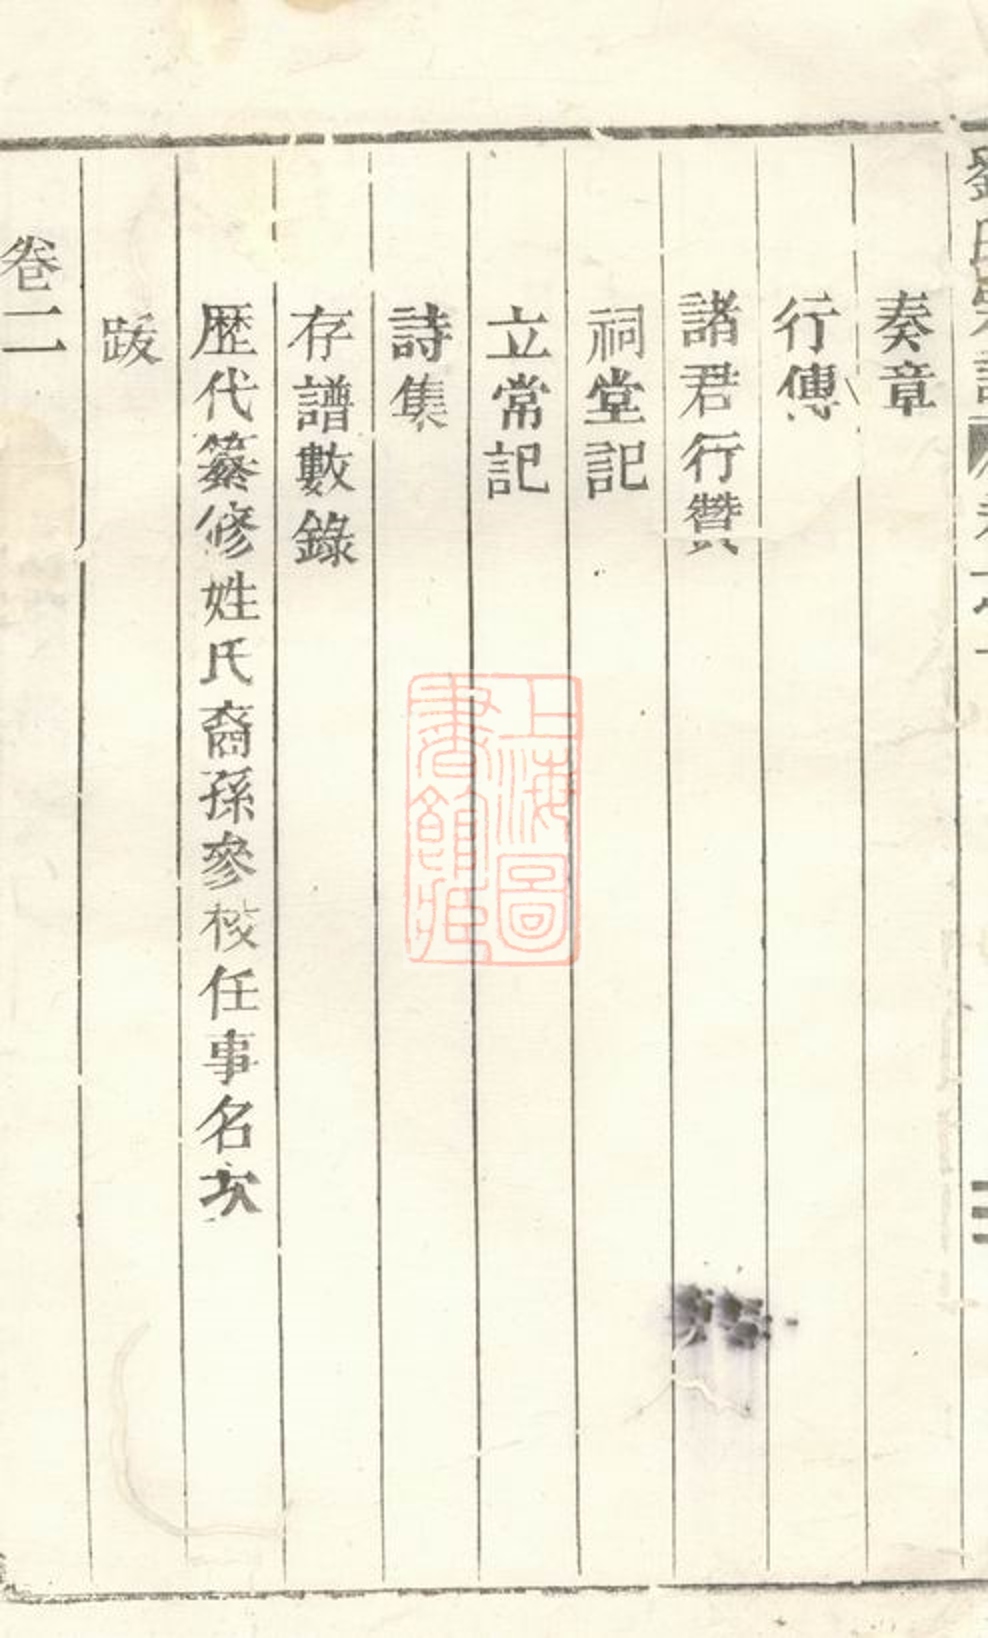 奏章
行傳
諸君行贊
祠堂記
立常記
詩集
存譜數錄
歷代纂修姓氏裔孫參校任事名次
跋
卷二
上海圖
書館藏